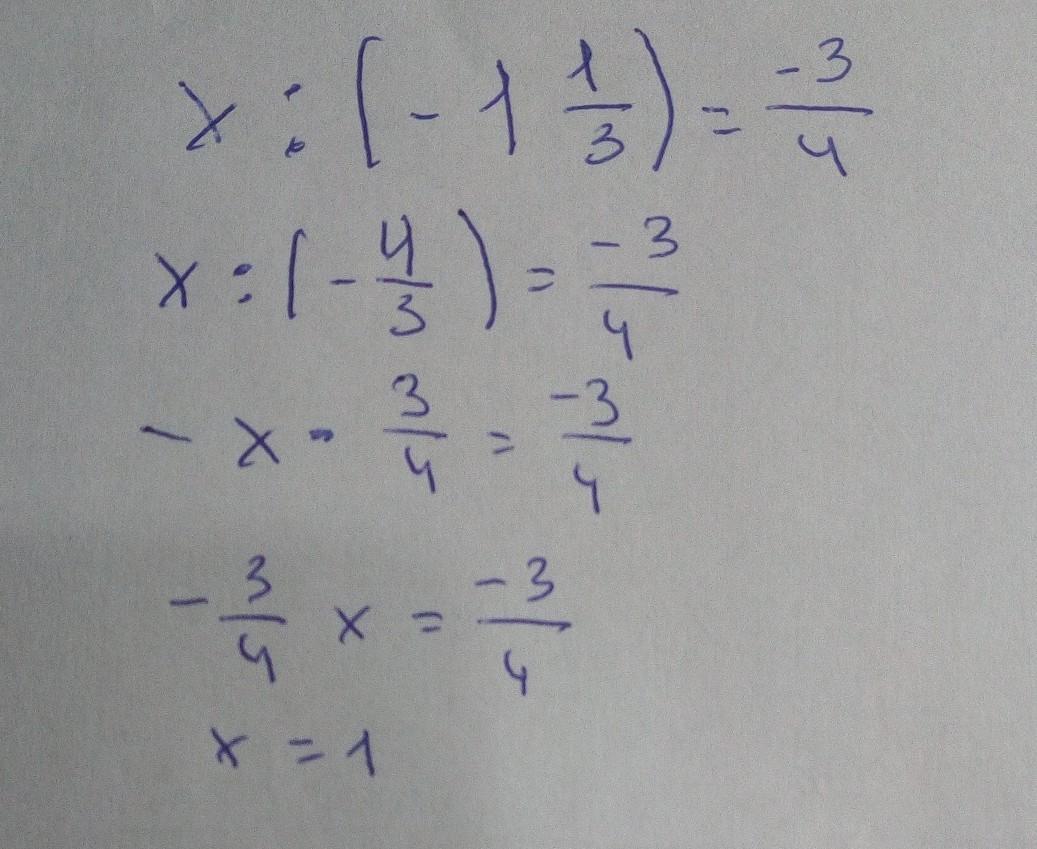 x : (-1 1/3) = -3/4
x : (-4/3) = -3/4
- x · 3/4 = -3/4
-3/4 x = -3/4
x = 1